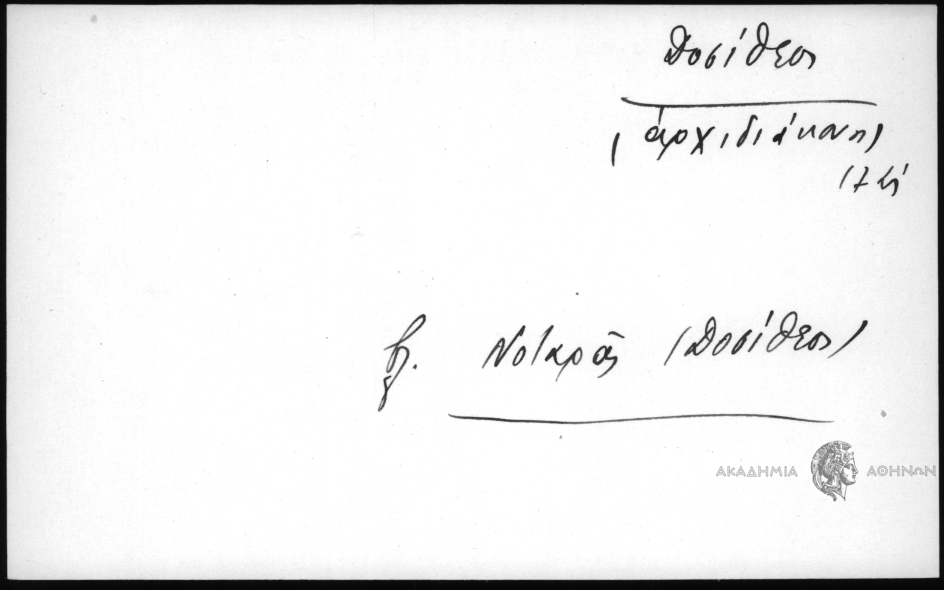 Δοσίθεος
(ἀρχιδιάκονος)
βλ. Νοταρᾶς (Δοσίθεος)
ΑΚΑΔΗΜΙΑ ΑΘΗΝΩΝ